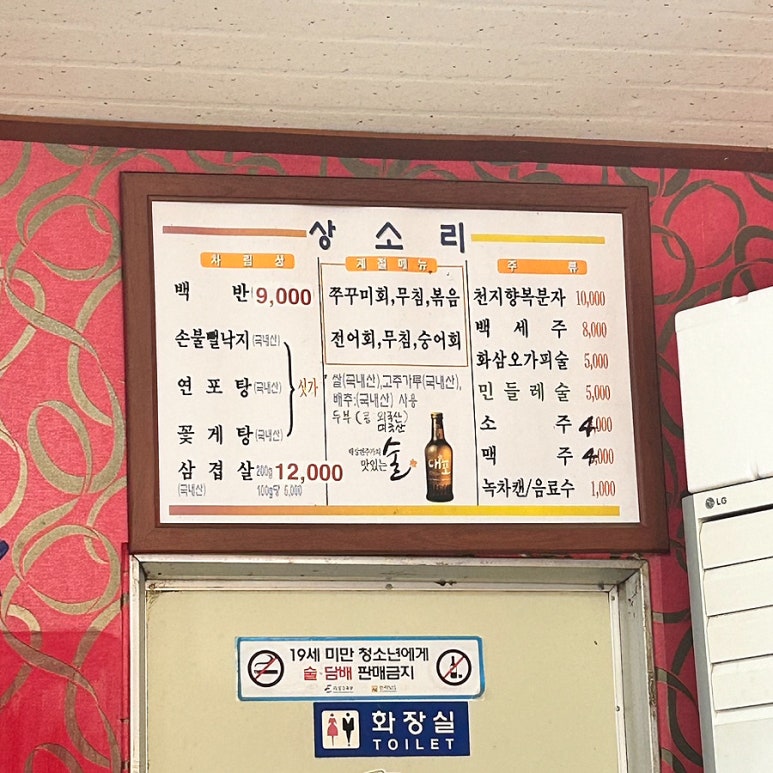 상 소 리
차 림 상
백 반 9,000
손불뻘낙지 (국내산)
연 포 탕 (국내산)
꽃 게 탕 (국내산)
싯가
삼 겹 살 200g 12,000
(국내산) 100g당 6,000
계 절 메 뉴
쭈꾸미회,무침,볶음
전어회,무침,숭어회
쌀(국내산),고추가루(국내산),
배추:(국내산) 사용
두부(콩 외국산)
미국산
맛있는 술
대포
주 류
천지향복분자 10,000
백 세 주 8,000
화삼오가피술 5,000
민 들 레 술 5,000
소 주 4,000
맥 주 4,000
녹차캔/음료수 1,000
LG
19세 미만 청소년에게
술·담배 판매금지
화장실
TOILET